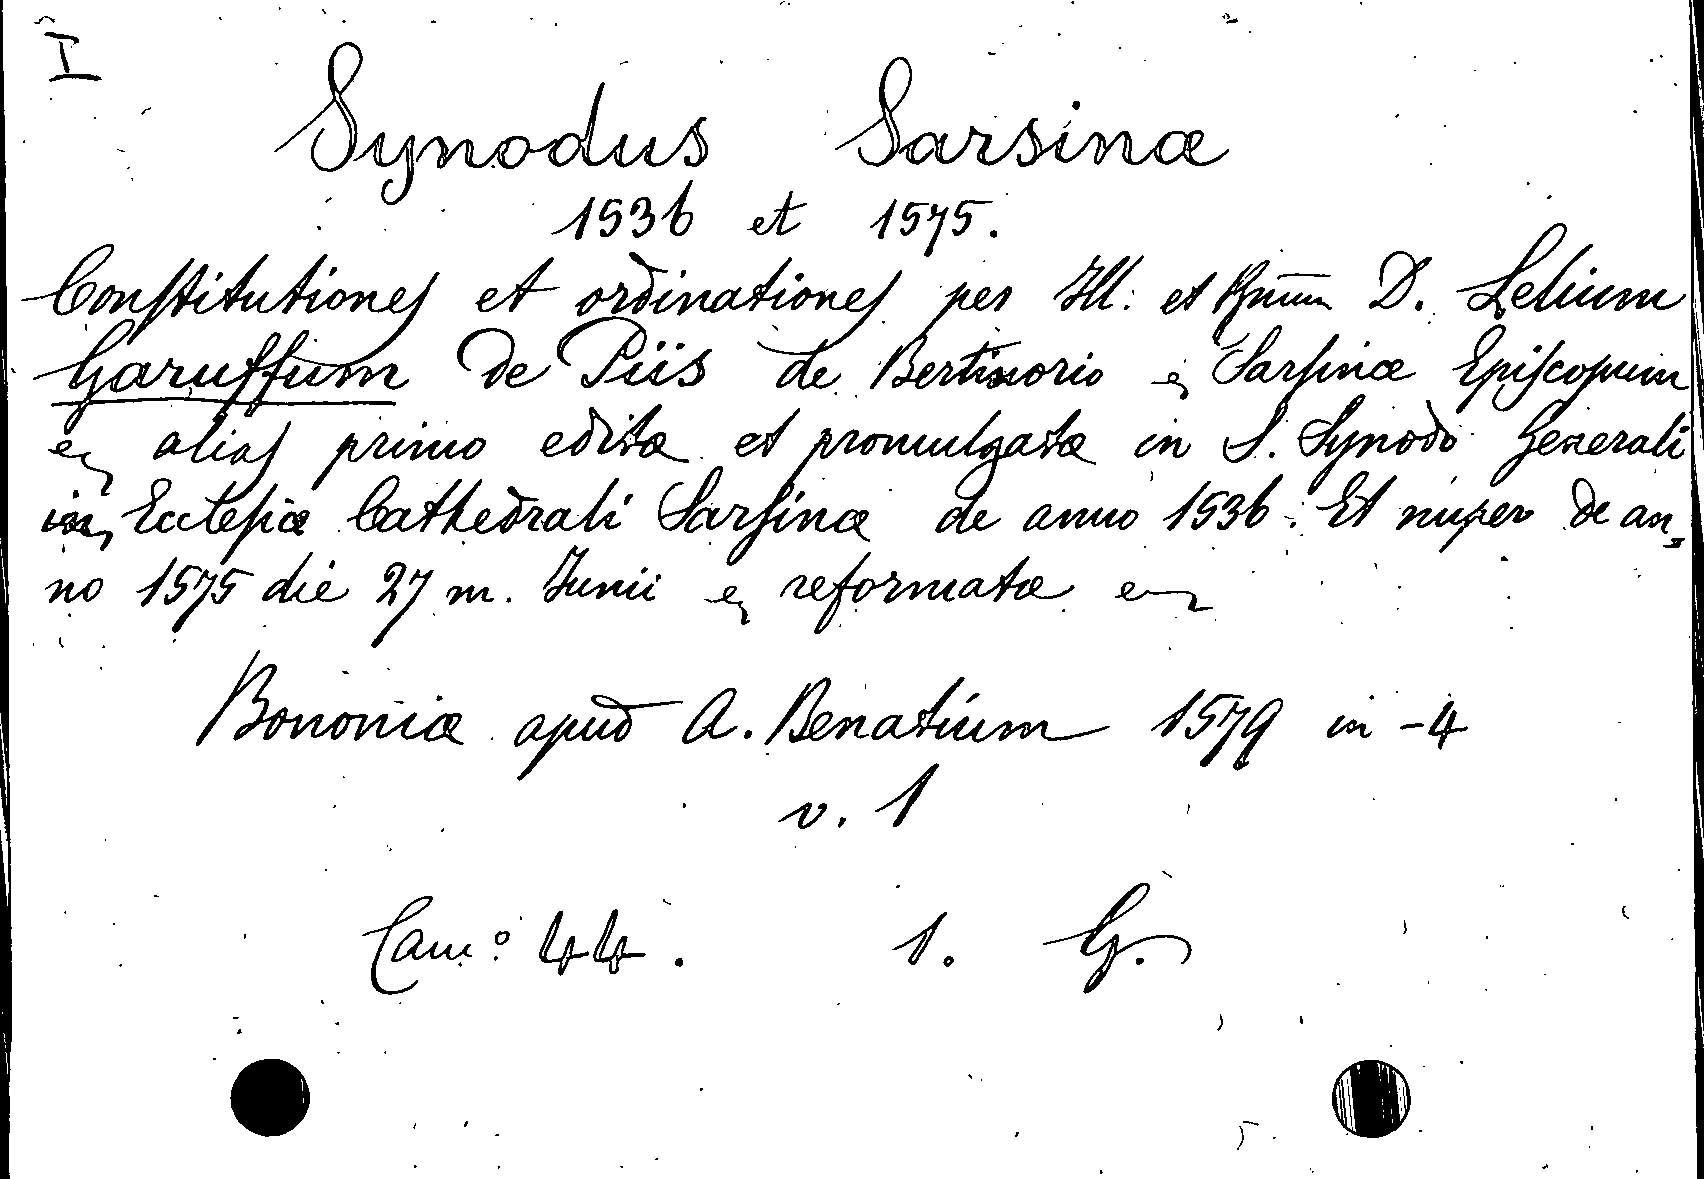 I
Synodus Sarsinæ
1536 et 1575.
Constitutiones et ordinationes per Ill: et Rmum D. Lelium
Garuffum de Piis de Bertinorio Sarsinæ Episcopum
alias primo editæ et promulgatæ in S. Synodo Generali
in Ecclesia Cathedrali Sarsinæ de anno 1536. Et nuper de an„
no 1575 die 27 m. Junii reformatæ
Bononiæ apud A. Benatium 1579 in -4
v. 1
Cam:º 44. 1. G.